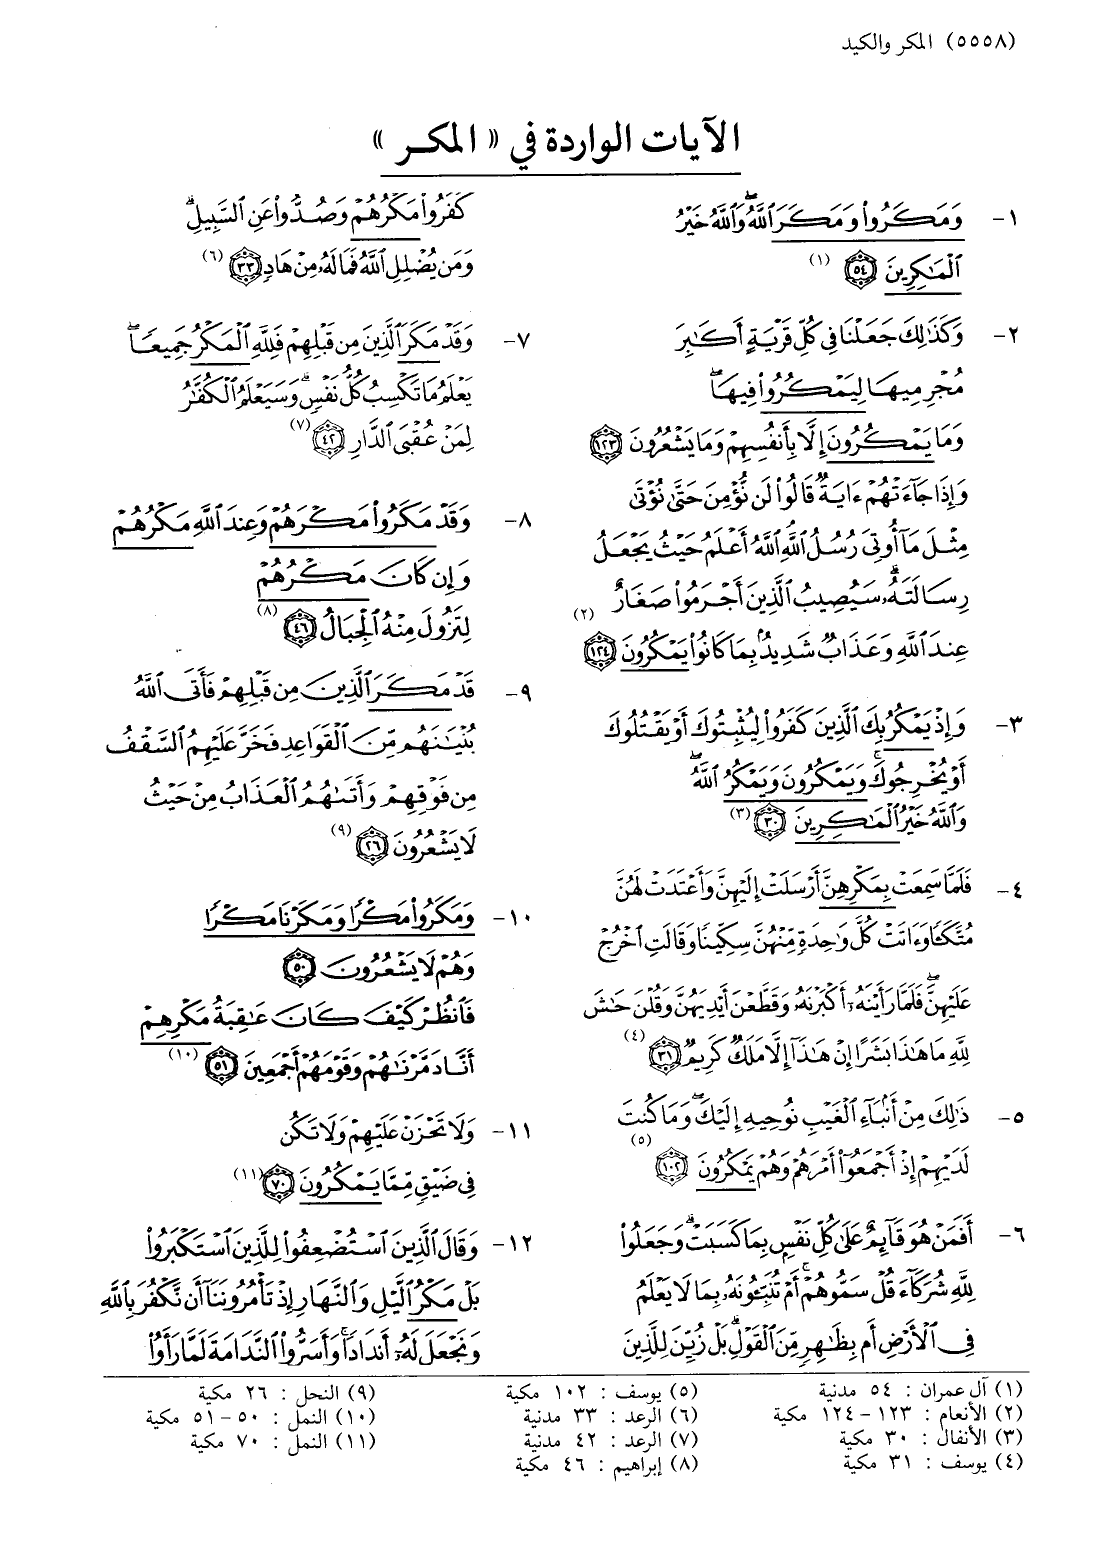 (٥٥٥٨) المكر والكيد
الآيات الواردة في «المكر»
١- وَمَكَرُوا۟ وَمَكَرَ ٱللَّهُ وَٱللَّهُ خَيْرُ
ٱلْمَٰكِرِينَ ﴿٥٤﴾ (١)
٢- وَكَذَٰلِكَ جَعَلْنَا فِى كُلِّ قَرْيَةٍ أَكَٰبِرَ
مُجْرِمِيهَا لِيَمْكُرُوا۟ فِيهَا
وَمَا يَمْكُرُونَ إِلَّا بِأَنفُسِهِمْ وَمَا يَشْعُرُونَ ﴿١٢٣﴾
وَإِذَا جَآءَتْهُمْ ءَايَةٌ قَالُوا۟ لَن نُّؤْمِنَ حَتَّىٰ نُؤْتَىٰ
مِثْلَ مَآ أُوتِىَ رُسُلُ ٱللَّهِ ٱللَّهُ أَعْلَمُ حَيْثُ يَجْعَلُ
رِسَالَتَهُۥ سَيُصِيبُ ٱلَّذِينَ أَجْرَمُوا۟ صَغَارٌ
عِندَ ٱللَّهِ وَعَذَابٌ شَدِيدٌۢ بِمَا كَانُوا۟ يَمْكُرُونَ ﴿١٢٤﴾ (٢)
٣- وَإِذْ يَمْكُرُ بِكَ ٱلَّذِينَ كَفَرُوا۟ لِيُثْبِتُوكَ أَوْ يَقْتُلُوكَ
أَوْ يُخْرِجُوكَ وَيَمْكُرُونَ وَيَمْكُرُ ٱللَّهُ
وَٱللَّهُ خَيْرُ ٱلْمَٰكِرِينَ ﴿٣٠﴾ (٣)
٤- فَلَمَّا سَمِعَتْ بِمَكْرِهِنَّ أَرْسَلَتْ إِلَيْهِنَّ وَأَعْتَدَتْ لَهُنَّ
مُتَّكَـًٔا وَءَاتَتْ كُلَّ وَٰحِدَةٍ مِّنْهُنَّ سِكِّينًا وَقَالَتِ ٱخْرُجْ
عَلَيْهِنَّ فَلَمَّا رَأَيْنَهُۥٓ أَكْبَرْنَهُۥ وَقَطَّعْنَ أَيْدِيَهُنَّ وَقُلْنَ حَٰشَ
لِلَّهِ مَا هَٰذَا بَشَرًا إِنْ هَٰذَآ إِلَّا مَلَكٌ كَرِيمٌ ﴿٣١﴾ (٤)
٥- ذَٰلِكَ مِنْ أَنۢبَآءِ ٱلْغَيْبِ نُوحِيهِ إِلَيْكَ وَمَا كُنتَ
لَدَيْهِمْ إِذْ أَجْمَعُوٓا۟ أَمْرَهُمْ وَهُمْ يَمْكُرُونَ ﴿١٠٢﴾ (٥)
٦- أَفَمَنْ هُوَ قَآئِمٌ عَلَىٰ كُلِّ نَفْسٍۭ بِمَا كَسَبَتْ وَجَعَلُوا۟
لِلَّهِ شُرَكَآءَ قُلْ سَمُّوهُمْ أَمْ تُنَبِّـُٔونَهُۥ بِمَا لَا يَعْلَمُ
فِى ٱلْأَرْضِ أَم بِظَٰهِرٍ مِّنَ ٱلْقَوْلِ بَلْ زُيِّنَ لِلَّذِينَ
كَفَرُوا۟ مَكْرُهُمْ وَصُدُّوا۟ عَنِ ٱلسَّبِيلِ
وَمَن يُضْلِلِ ٱللَّهُ فَمَا لَهُۥ مِنْ هَادٍ ﴿٣٣﴾ (٦)
٧- وَقَدْ مَكَرَ ٱلَّذِينَ مِن قَبْلِهِمْ فَلِلَّهِ ٱلْمَكْرُ جَمِيعًا
يَعْلَمُ مَا تَكْسِبُ كُلُّ نَفْسٍ وَسَيَعْلَمُ ٱلْكُفَّٰرُ
لِمَنْ عُقْبَى ٱلدَّارِ ﴿٤٢﴾ (٧)
٨- وَقَدْ مَكَرُوا۟ مَكْرَهُمْ وَعِندَ ٱللَّهِ مَكْرُهُمْ
وَإِن كَانَ مَكْرُهُمْ
لِتَزُولَ مِنْهُ ٱلْجِبَالُ ﴿٤٦﴾ (٨)
٩- قَدْ مَكَرَ ٱلَّذِينَ مِن قَبْلِهِمْ فَأَتَى ٱللَّهُ
بُنْيَٰنَهُم مِّنَ ٱلْقَوَاعِدِ فَخَرَّ عَلَيْهِمُ ٱلسَّقْفُ
مِن فَوْقِهِمْ وَأَتَىٰهُمُ ٱلْعَذَابُ مِنْ حَيْثُ
لَا يَشْعُرُونَ ﴿٢٦﴾ (٩)
١٠- وَمَكَرُوا۟ مَكْرًا وَمَكَرْنَا مَكْرًا
وَهُمْ لَا يَشْعُرُونَ ﴿٥٠﴾
فَٱنظُرْ كَيْفَ كَانَ عَٰقِبَةُ مَكْرِهِمْ
أَنَّا دَمَّرْنَٰهُمْ وَقَوْمَهُمْ أَجْمَعِينَ ﴿٥١﴾ (١٠)
١١- وَلَا تَحْزَنْ عَلَيْهِمْ وَلَا تَكُن
فِى ضَيْقٍ مِّمَّا يَمْكُرُونَ ﴿٧٠﴾ (١١)
١٢- وَقَالَ ٱلَّذِينَ ٱسْتُضْعِفُوا۟ لِلَّذِينَ ٱسْتَكْبَرُوا۟
بَلْ مَكْرُ ٱلَّيْلِ وَٱلنَّهَارِ إِذْ تَأْمُرُونَنَآ أَن نَّكْفُرَ بِٱللَّهِ
وَنَجْعَلَ لَهُۥٓ أَندَادًا وَأَسَرُّوا۟ ٱلنَّدَامَةَ لَمَّا رَأَوُا۟
(١) آل عمران : ٥٤ مدنية
(٢) الأنعام : ١٢٣ – ١٢٤ مكية
(٣) الأنفال : ٣٠ مكية
(٤) يوسف : ٣١ مكية
(٥) يوسف : ١٠٢ مكية
(٦) الرعد : ٣٣ مدنية
(٧) الرعد : ٤٢ مدنية
(٨) إبراهيم : ٤٦ مكية
(٩) النحل : ٢٦ مكية
(١٠) النمل : ٥٠ – ٥١ مكية
(١١) النمل : ٧٠ مكية